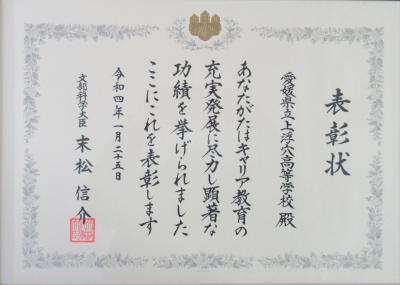 表彰状
愛媛県立上浮穴高等学校 殿
あなたがたはキャリア教育の
充実発展に尽力し顕著な
功績を挙げられました
ここにこれを表彰します
令和四年一月二十五日
文部科学大臣 末松信介